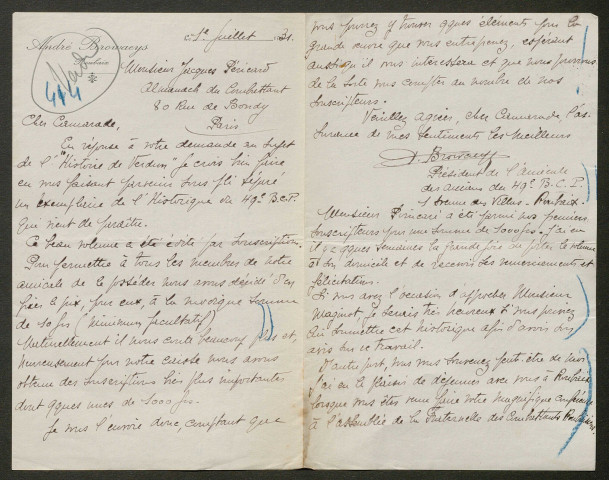 André Browaeys
Roubaix
le 1er Juillet 1931.
Monsieur Jacques Péricard
Almanach du Combattant
80 Rue de Bondy
Paris
Cher Camarade,
En réponse à votre demande au sujet
de l'"Histoire de Verdun" je crois bien faire
en vous faisant parvenir sous pli séparé
un exemplaire de l'Historique du 49e B.C.P.
qui vient de paraître.
Ce beau volume a été édité par souscription.
Pour permettre à tous les membres de notre
amicale de le posséder nous avons décidé d'en
fixer le prix, pour eux, à la modique somme
de 10 frs (minimum facultatif)
Naturellement il nous coûte beaucoup plus et
heureusement pour notre caisse nous avons
obtenu des souscriptions bien plus importantes
dont qques unes de 1000 frs.
Je vous l'envoie donc, comptant que
vous pourrez y trouver qques éléments pour la
grande œuvre que vous entreprenez, espérant
aussi qu'il vous intéressera et que nous pourrons
de la sorte vous compter au nombre de nos
souscripteurs.
Veuillez agréer, cher Camarade, l'as-
surance de mes sentiments les meilleurs
A Browaeys
Président de l'Amicale
des anciens du 49e B.C.P.
Roubaix.
Monsieur Poincaré a été parmi nos premiers
souscripteurs pour une somme de 1000 frs. J'ai eu
il y a qques semaines la grande joie de porter le volume
à son domicile et de recevoir ses remerciements et
félicitations.
Si vous avez l'occasion d'approcher Monsieur
Maginot, je serais très heureux si vous pouviez
lui soumettre cet historique afin d'avoir son
avis sur ce travail.
D'autre part, vous vous souvenez peut-être de moi
j'ai eu le plaisir de déjeuner avec vous à Roubaix
lorsque vous êtes venu faire votre magnifique conférence
à l'assemblée de la Fraternelle des Combattants Roubaisiens.